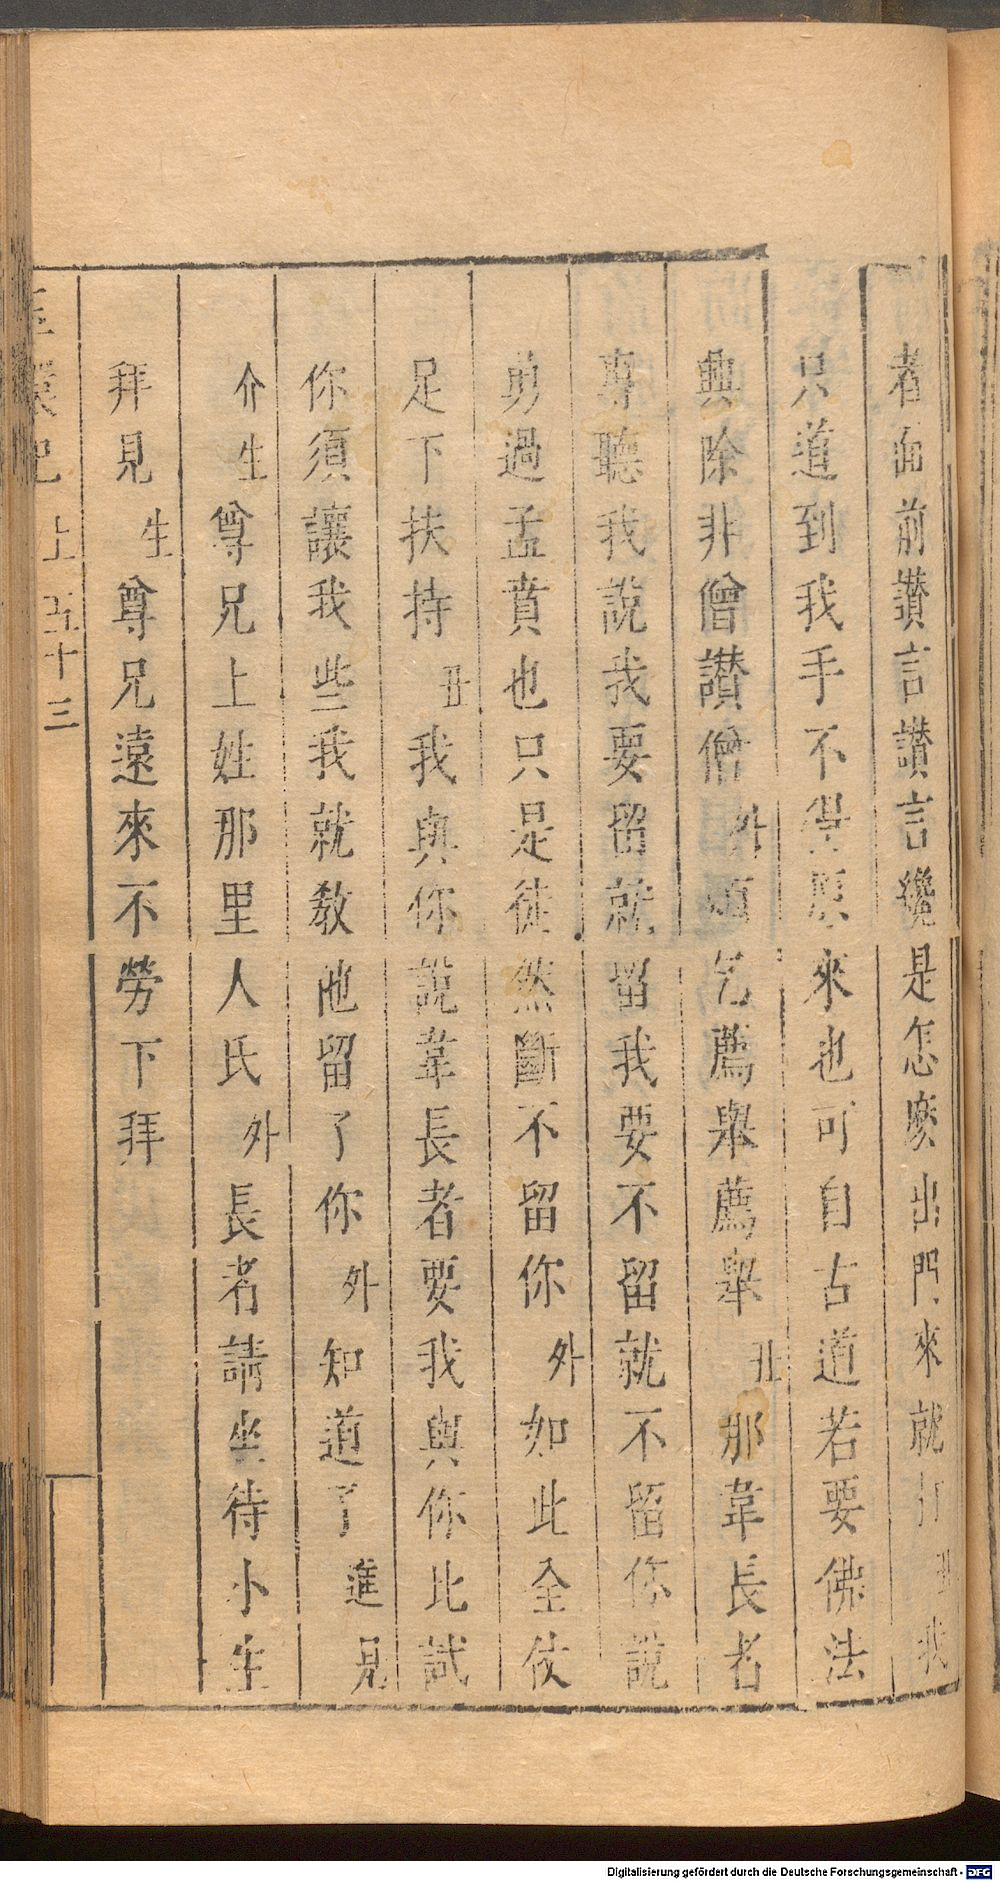 者面前讚言讚言纔是怎麽出門來就打丑我
只道到我手不得原來也可自古道若要佛法
興除非僧讃僧外須乞薦舉薦舉丑那韋長者
專聽我說我要留就留我要不留就不留你說
勇過孟賁也只是徒然斷不留你外如此全仗
足下扶持丑我與你說韋長者要我與你比試
你須讓我些我就教他留了你外知道了進見
介生尊兄上姓那里人氏外長者請坐待小生
拜見生尊兄遠來不勞下拜
玉環記 上 五十三
Digitalisierung gefördert durch die Deutsche Forschungsgemeinschaft - DFG